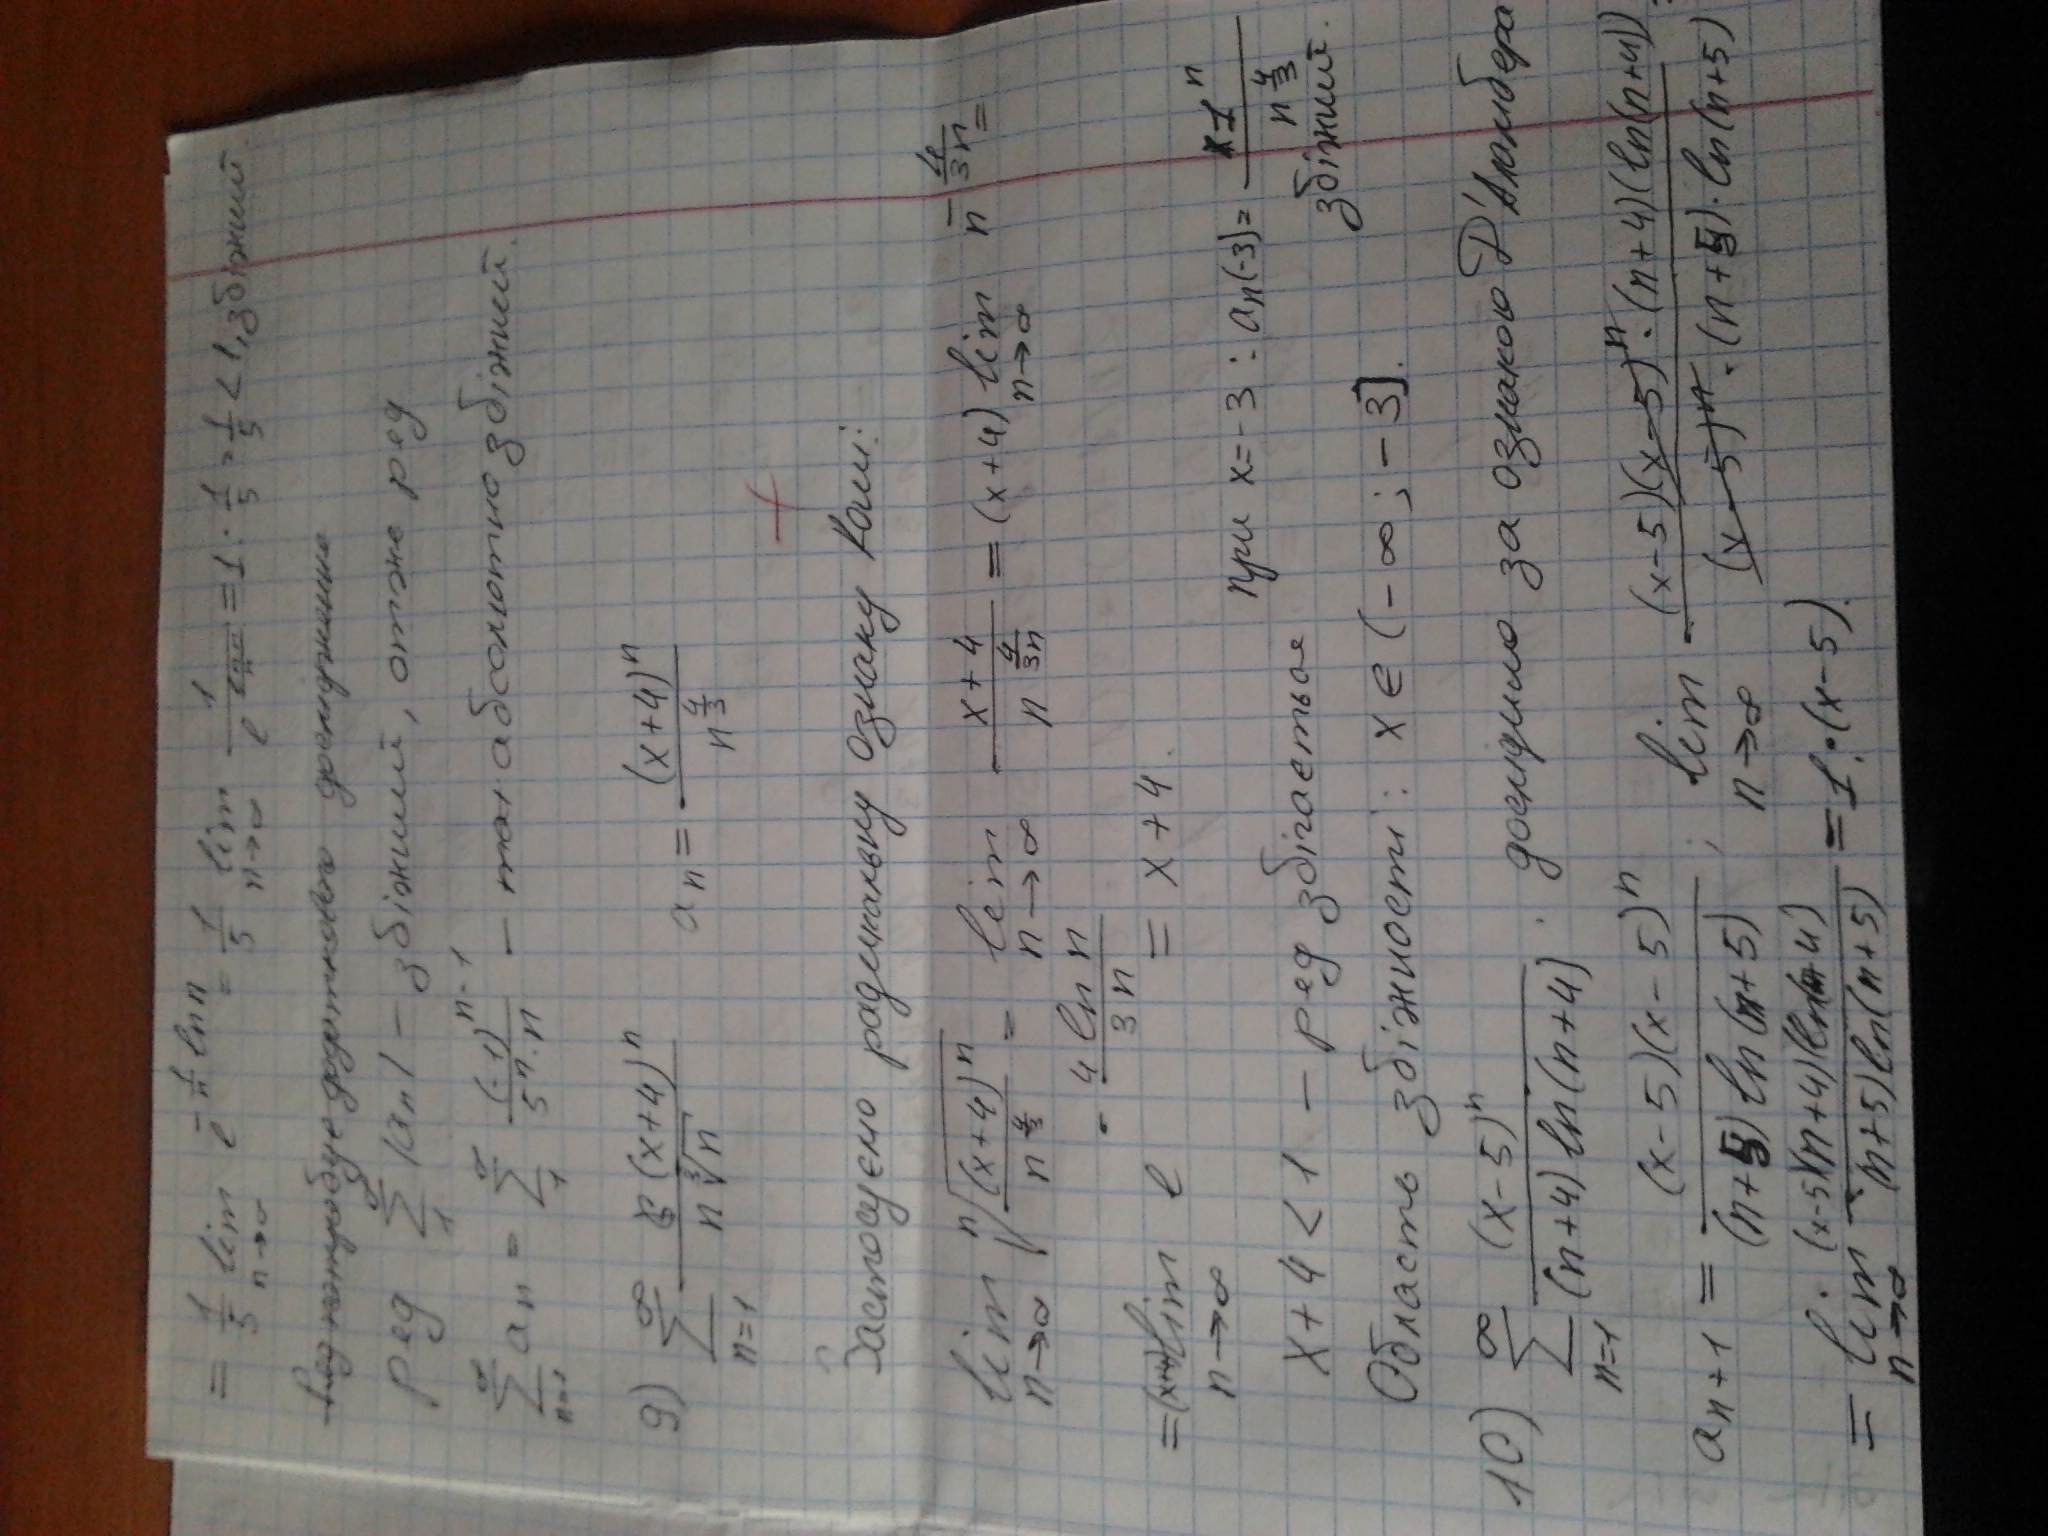 = 1/5 lim n→∞ e^(-1/n ln n) = 1/5 lim n→∞ 1/e^(ln n/n) = 1 · 1/5 = 1/5 < 1, збіжний.
Ряд потребує додаткового дослідження
ряд ∑ 1 ∞ |aₙ| – збіжний, отже ряд
∑ n=1 ∞ aₙ = ∑ 1 ∞ (-1)^(n-1) / (5ⁿ · n) – абсолютно збіжний.
9) ∑ n=1 ∞ (x+4)ⁿ / (n ∛n) aₙ = (x+4)ⁿ / n^(4/3)
+
Застосуємо радикальну ознаку Коші:
lim n→∞ ⁿ√((x+4)ⁿ / n^(4/3)) = lim n→∞ (x+4) / n^(4/3n) = (x+4) lim n→∞ n^(-4/3n) =
= (x+4) lim n→∞ e^(- 4 ln n / 3n) = x+4.
при x=-3 : aₙ(-3) = 1ⁿ / n^(4/3)
збіжний.
x+4 < 1 – ряд збігається
Область збіжності: x ∈ (-∞; -3].
10) ∑ n=1 ∞ (x-5)ⁿ / ((n+4) ln(n+4)) . дослідимо за ознакою Д'Аламбера
aₙ₊₁ = (x-5)(x-5)ⁿ / ((n+5) ln(n+5)) ; lim n→∞ (x-5)(x-5)ⁿ · (n+4)(ln(n+4)) / ((x-5)ⁿ · (n+5) · ln(n+5)) =
= lim n→∞ (x-5)(n+4)(ln(n+4) / ((n+5) ln(n+5)) = 1 · (x-5).